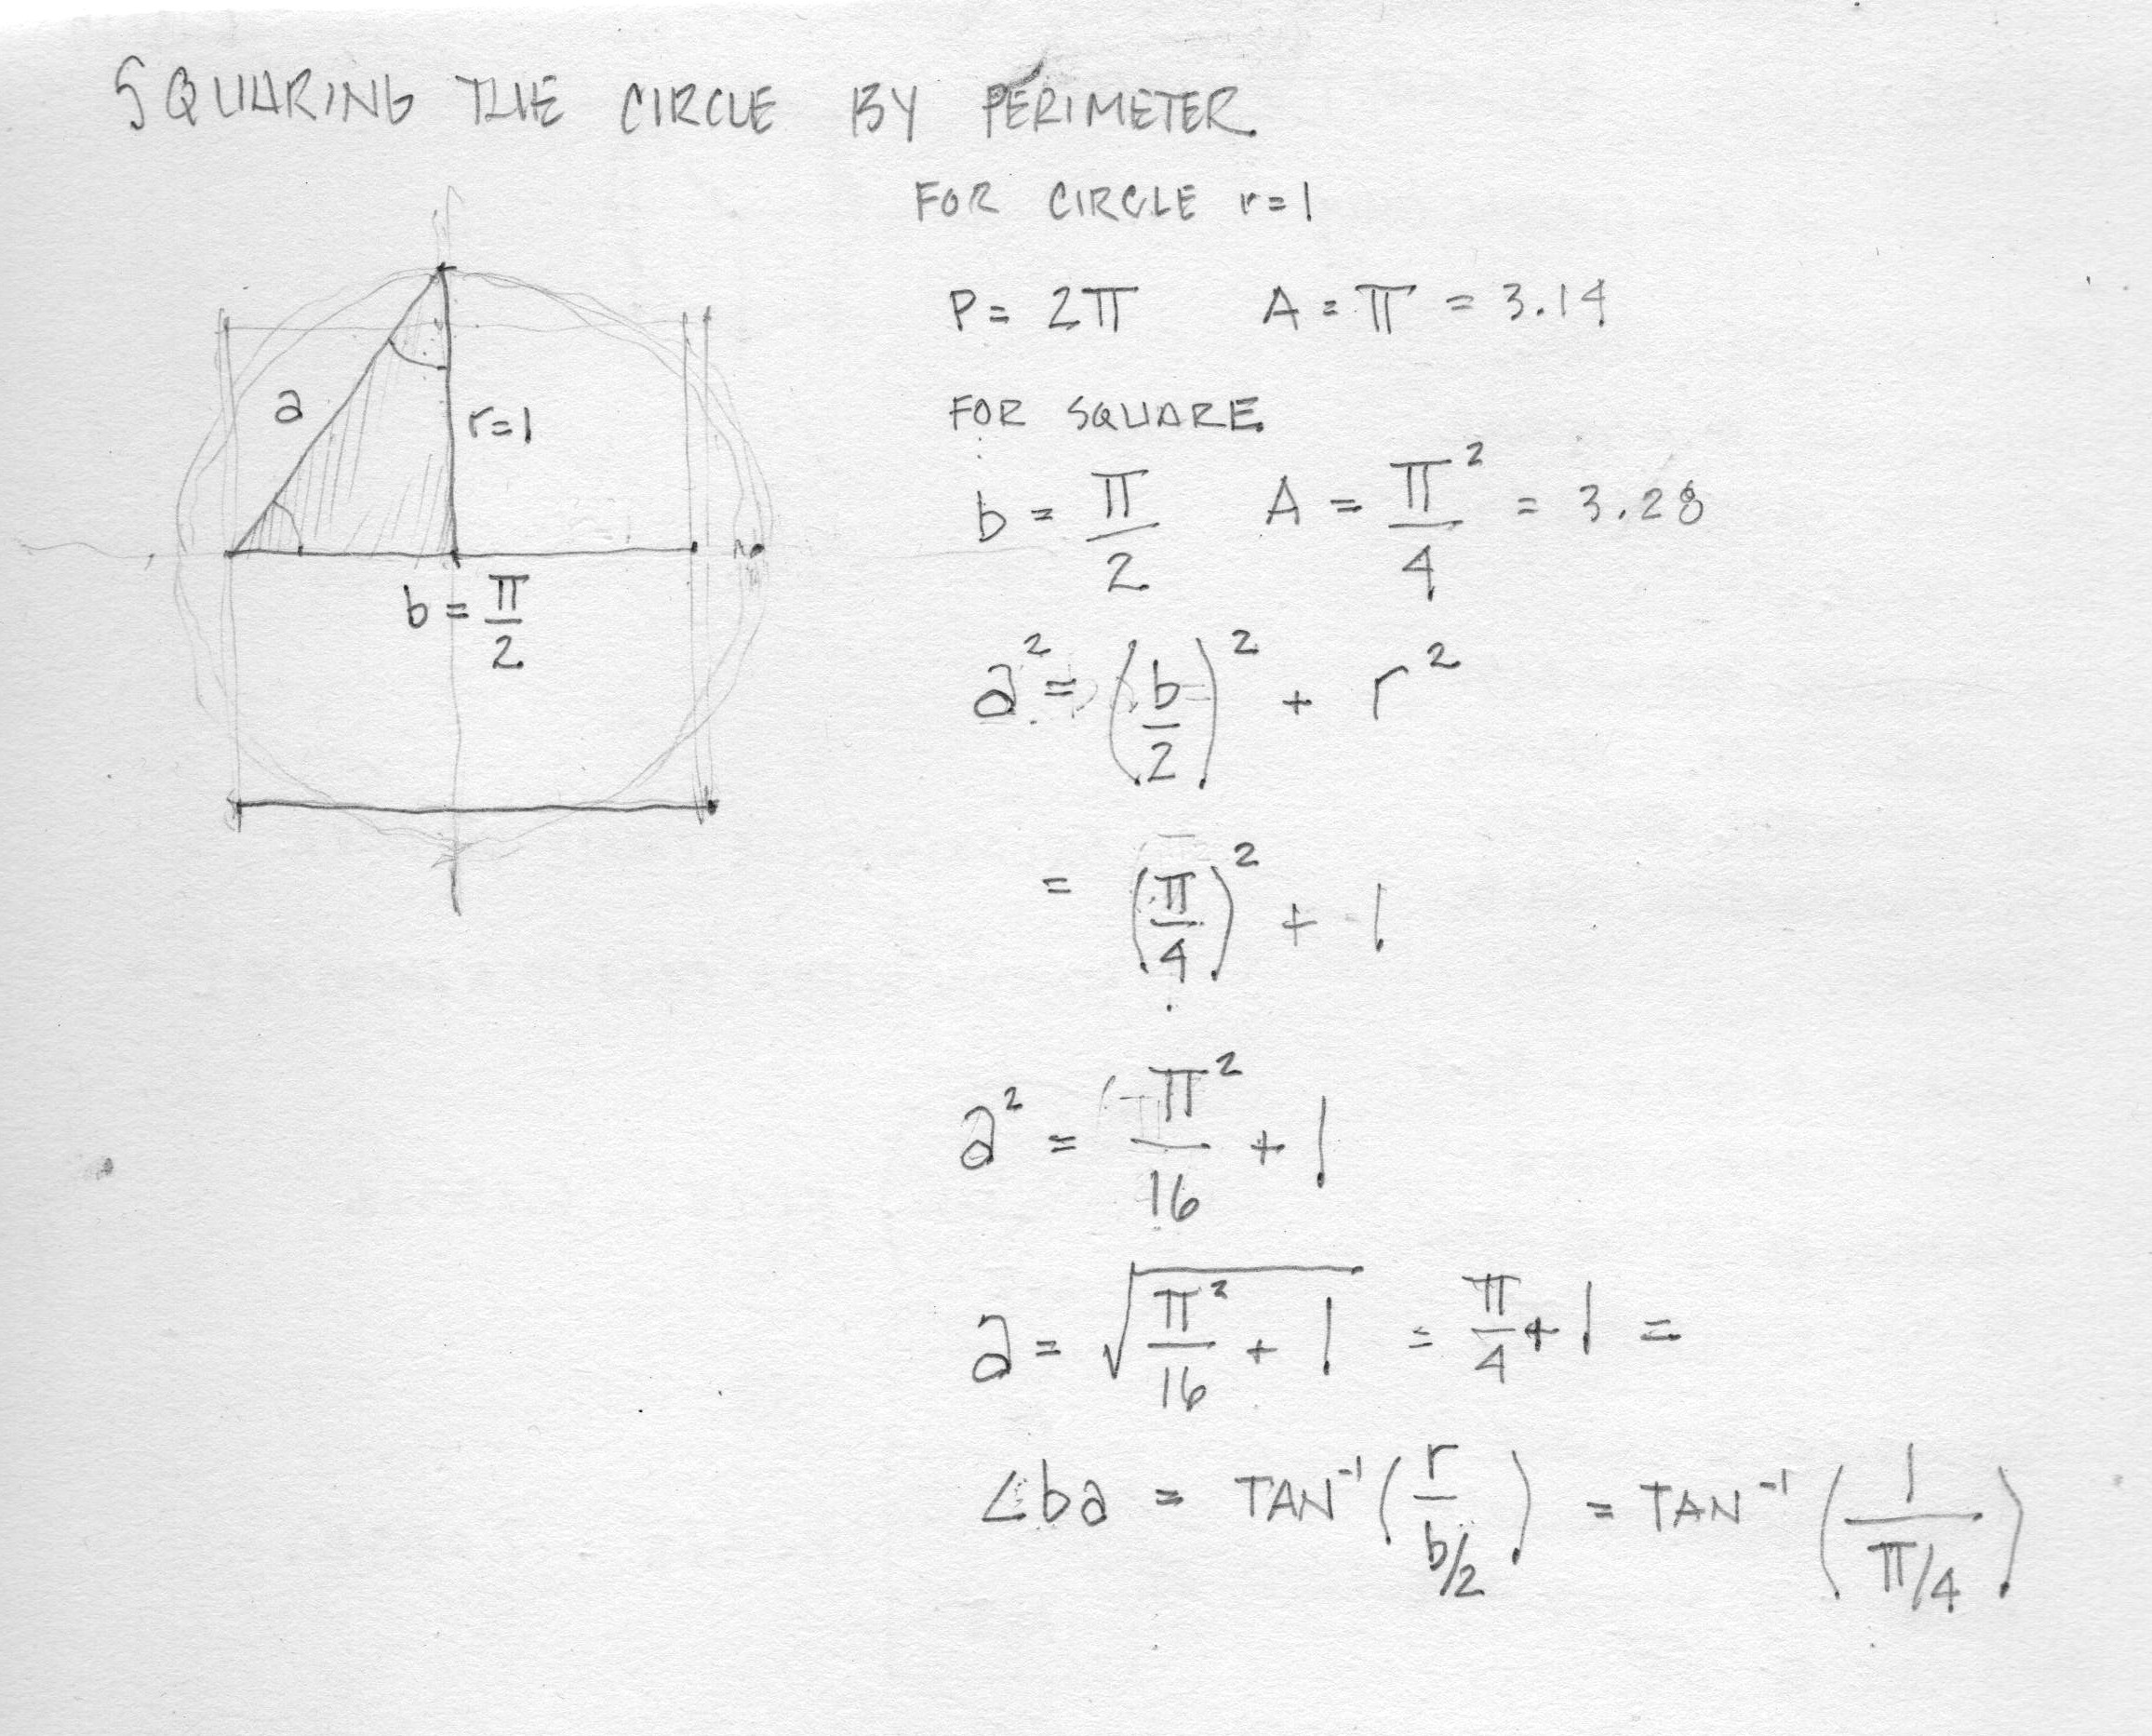 SQUARING THE CIRCLE BY PERIMETER
FOR CIRCLE r=1
P = 2π A = π = 3.14
FOR SQUARE
b = π/2 A = π²/4 = 3.28
a
r=1
b = π/2
a² = (b/2)² + r²
= (π/4)² + 1
a² = π²/16 + 1
a = √(π²/16 + 1) = π/4 + 1 =
∠ba = TAN⁻¹ (r/(b/2)) = TAN⁻¹ (1/(π/4))